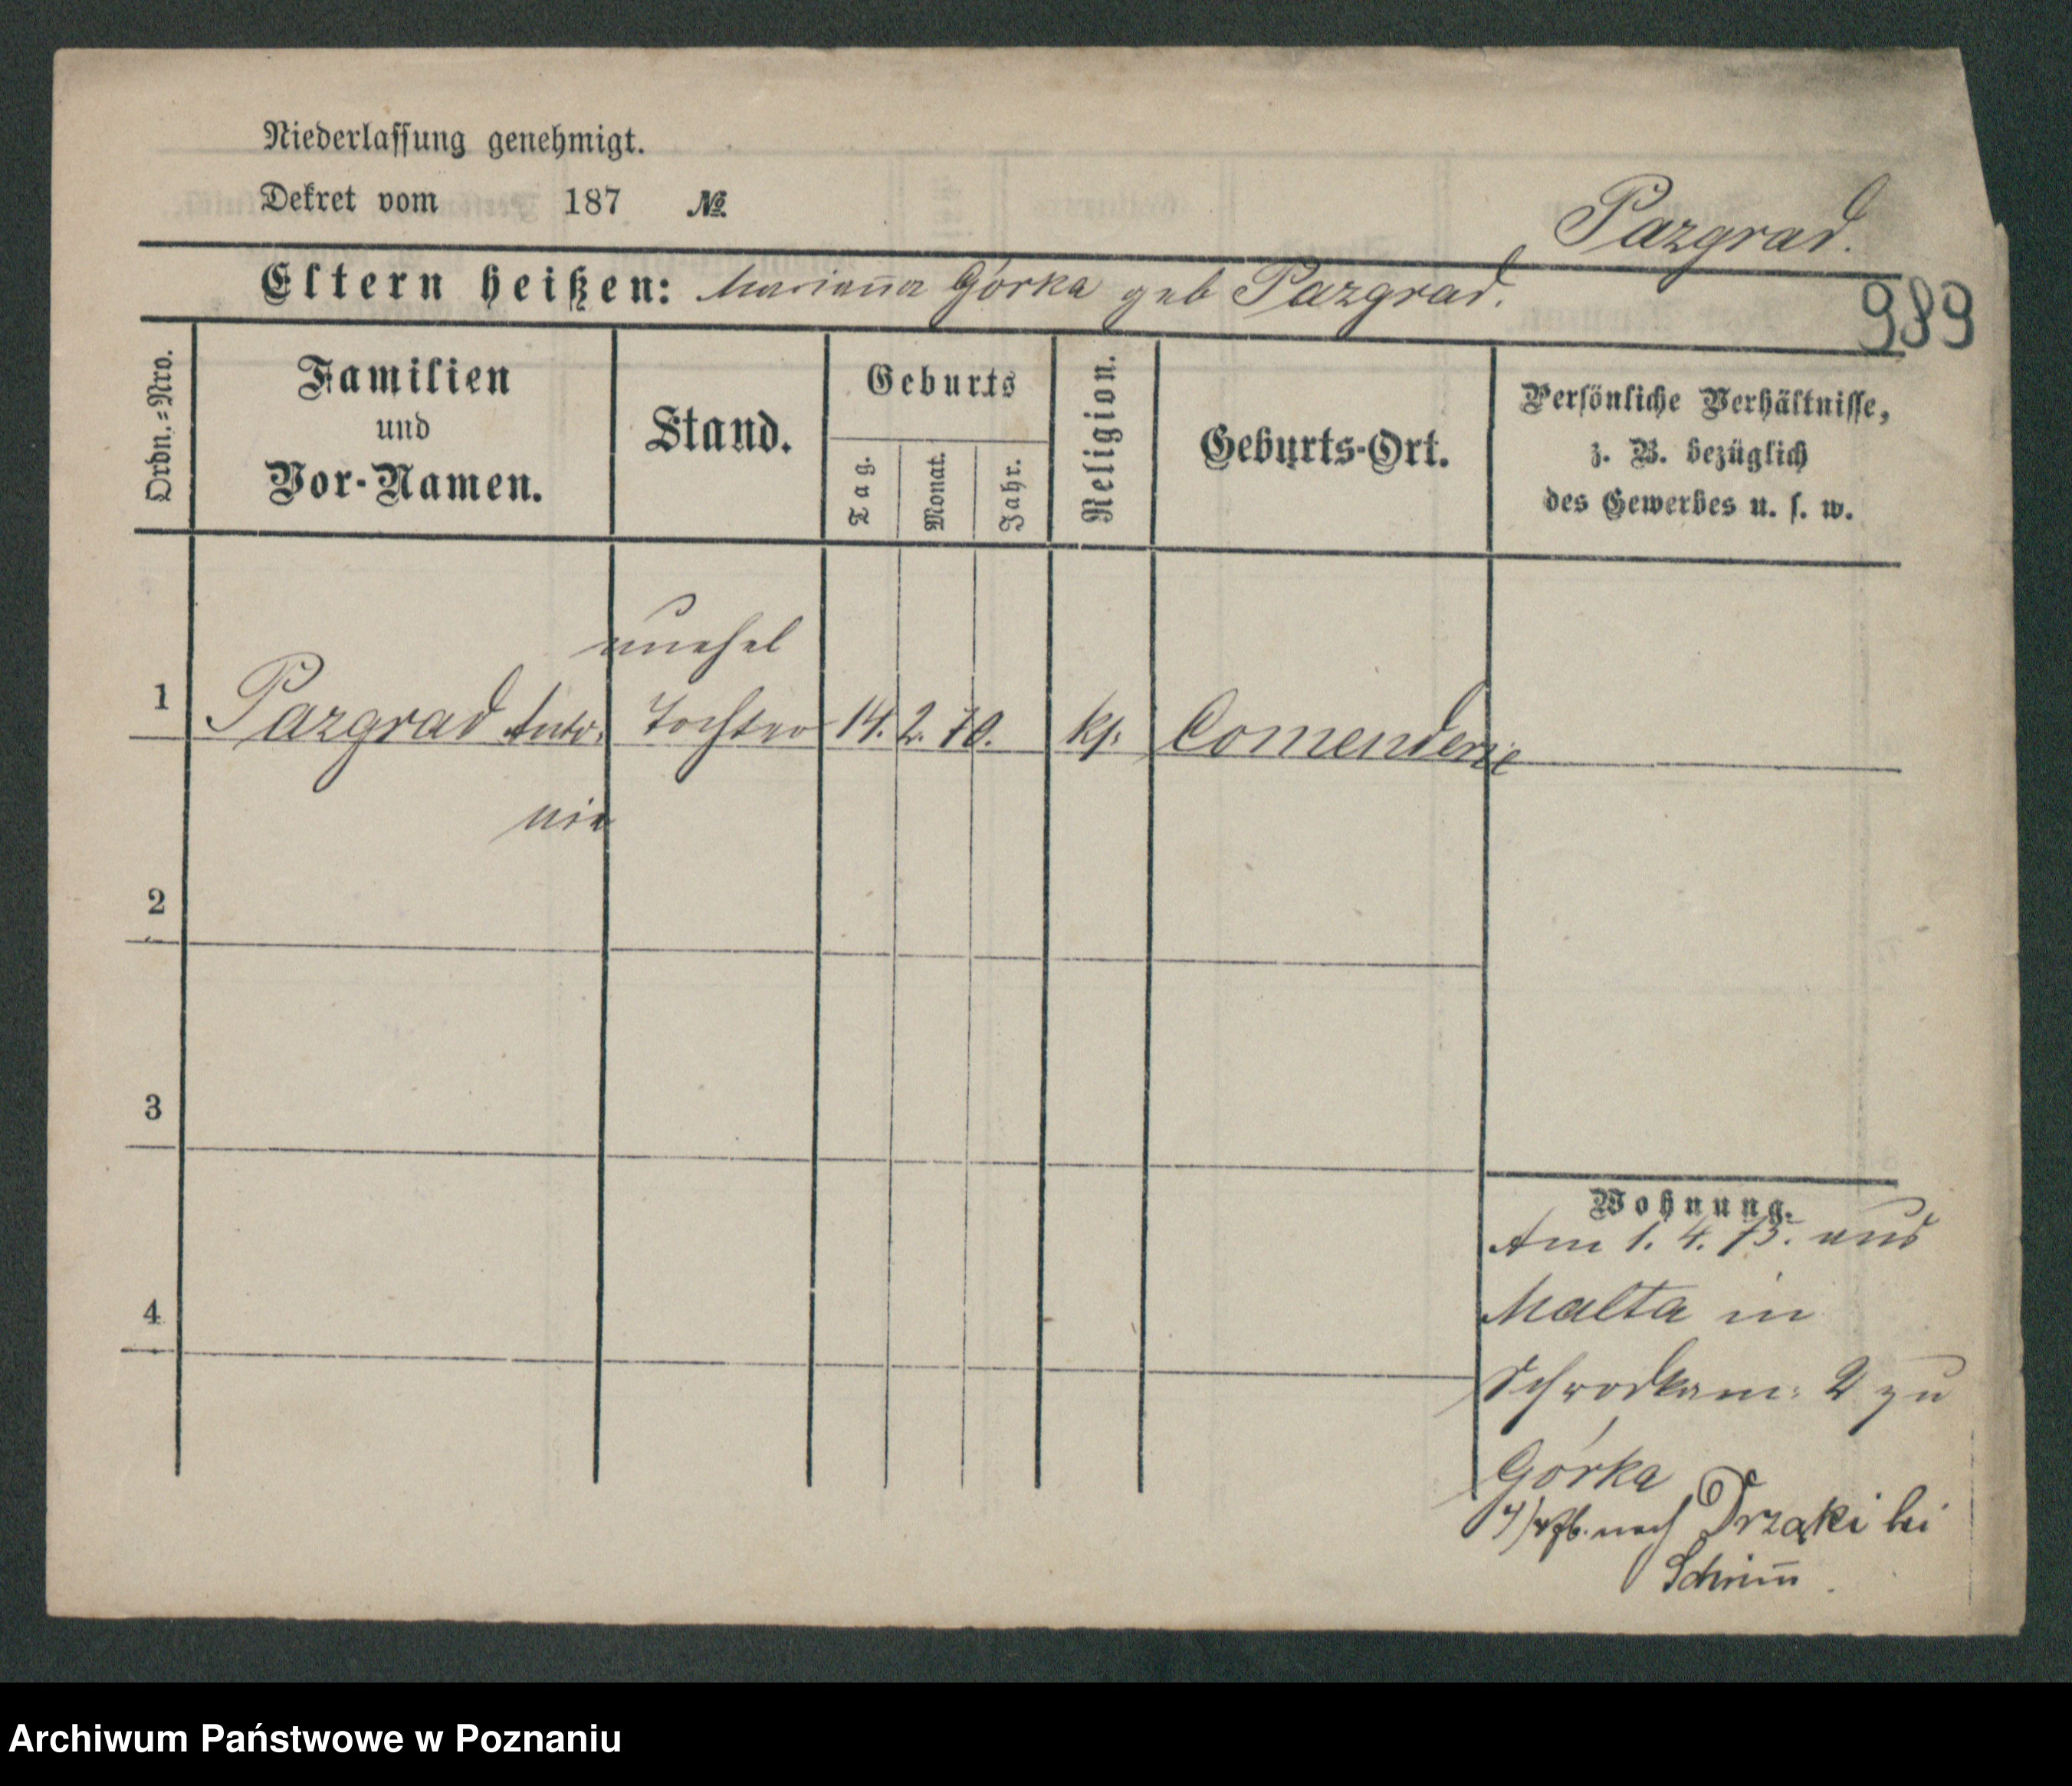 Niederlassung genehmigt.
Dekret vom 187 №
Pazgrad.
Eltern heißen: Marianna Górka geb Pazgrad.
989
Ordn.=Nro.
Familien
und
Vor-Namen.
Stand.
Geburts
Tag.
Monat.
Jahr.
Religion.
Geburts-Ort.
Persönliche Verhältnisse,
z. B. bezüglich
des Gewerbes u. s. w.
unehel
1 Pazgrad Anto= Tochter 14. 2. 70. kf. Comenderie
nie
2
3
4
Wohnung.
Am 1. 4. 75. aus
Malta in
Schrodkam: 2 zu
Górka
nach Drząki bei
Schrim̄.
Archiwum Państwowe w Poznaniu